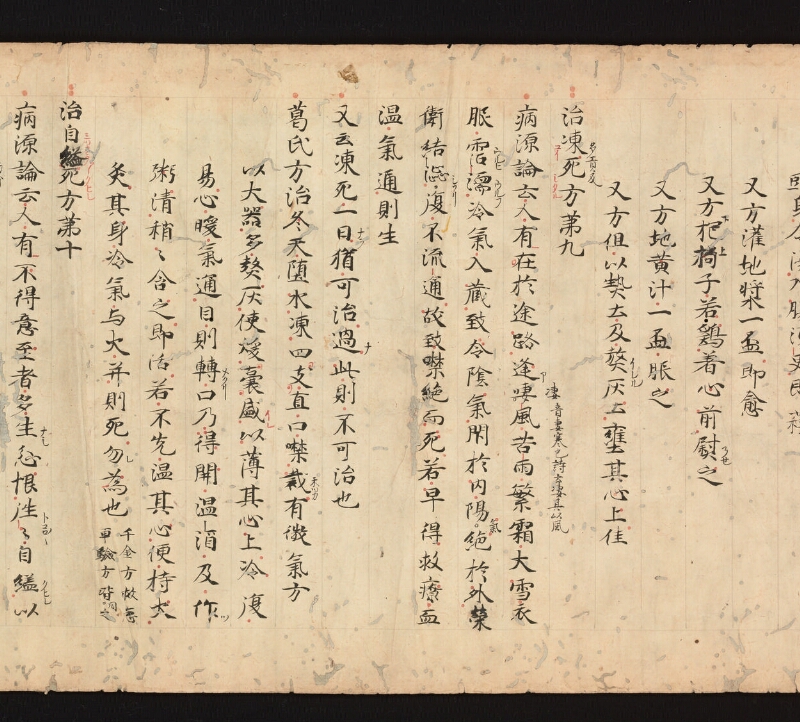 又方灌地漿一盃即愈
又方杷搗子若鷄着心前熨之
又方地黄汁一盃服之
又方但以熱土及熬灰土壅其心上佳
治凍死方第九
病源論云人有在於途路逢凄風苦雨繁霜大雪衣
服霑濡冷氣入蔵致令陰氣閇於内陽氣絶於外榮
衛結澁復不流通故致噤絶而死若早得救療血
温氣通則生
又云凍死一日猶可治過此則不可治也
葛氏方治冬天堕水凍四支直口噤裁有微氣方
以大器多熬灰使煖囊盛以薄其心上冷復
易心暖氣通目則轉口乃得開温酒及作
粥清稍〻含之即活若不先温其心便持火
炙其身冷氣与火并則死勿為也 千金方救急
單驗方皆同之
治自縊死方第十
病源論云人有不得意至者多生忿恨往〻自縊以